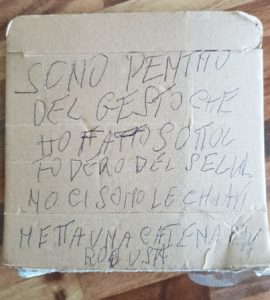 SONO PENTITO
DEL GESTO CHE
HO FATTO SOTTO L
FODERO DEL SELLI
NO CI SONO LE CHIAVI
METTA UNA CATENA PIU
ROBUSTA